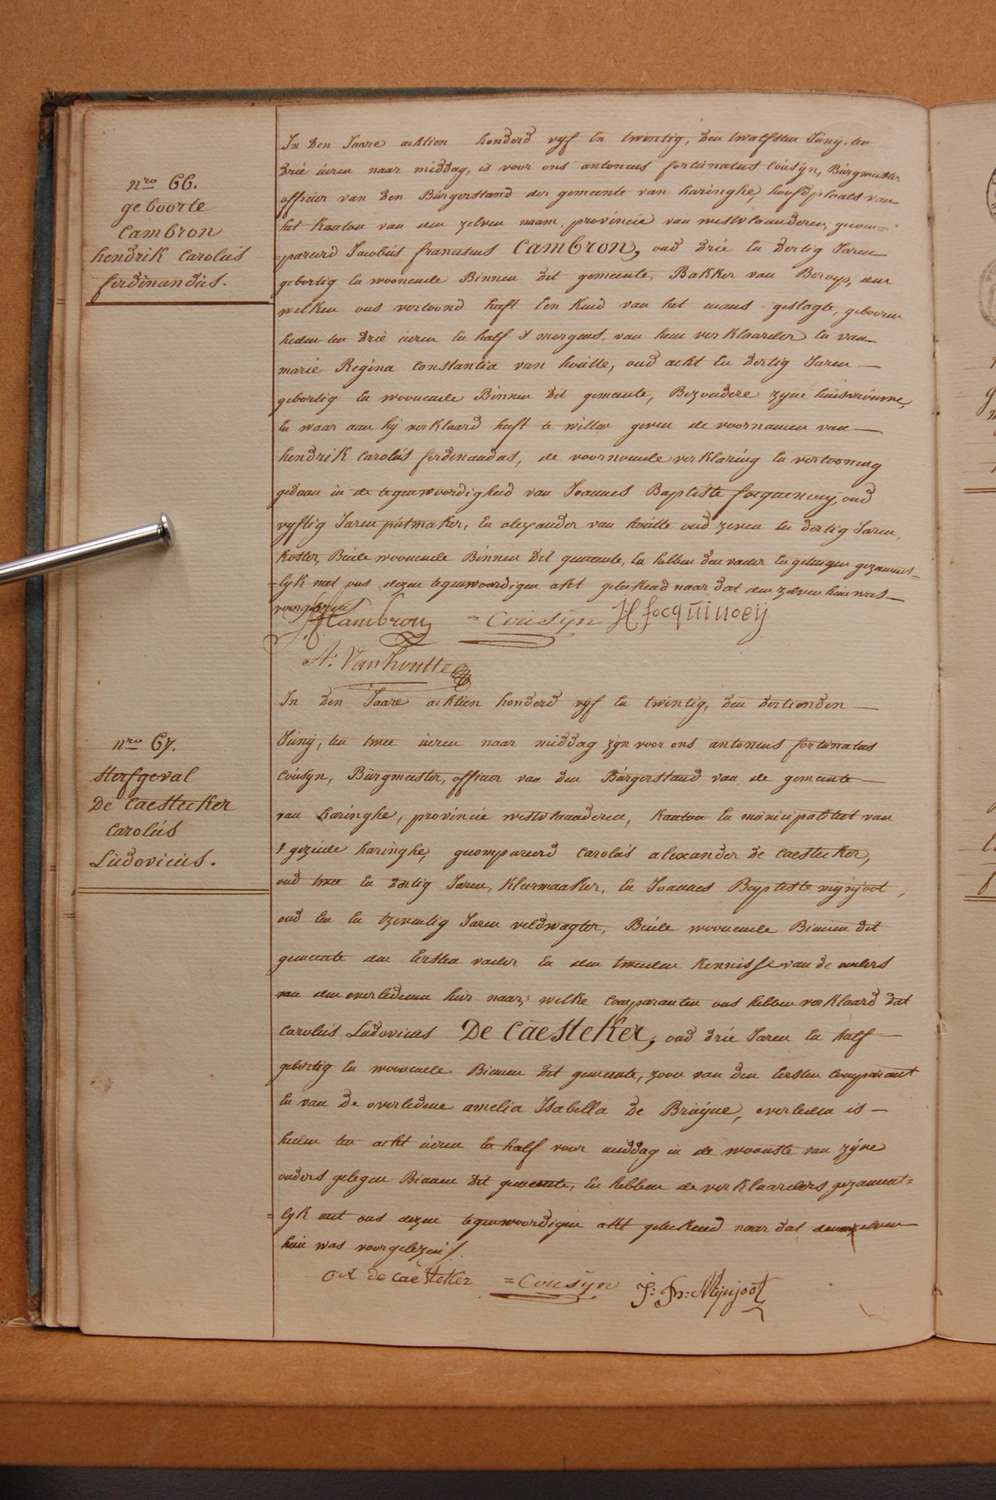 nro 66.
geboorte
Cambron
hendrik Carolus
ferdinandus.
In den Jaare achtien honderd vyf en twintig, den twalfsten Juny, ten
drie uren naar middag, is voor ons antonius fortunatus Cousyn, Burgmeester
officier van den Burgerstand der gemeente van haringhe, hoofdplaats van
het kanton van den zelven naam, provincie van westvlaanderen, gecom=
pareerd Jacobus franciscus Cambron, oud drie en dertig Jaren
gebortig en woonende Binnen dit gemeente, Bakker van Beroep, den
welken ons vertoond heeft een kind van het mans geslagte, gebooren
heden ten drie uren en half 's morgens, van hem verklaarder en van
marie Regina Constantia van houtte, oud acht en dertig Jaren
gebortig en woonende Binnen dit gemeente, Bezondere zyne huisvrouwe,
en waar aan hij verklaard heeft te willen geven de voornamen van
hendrik Carolus ferdinandus, de voornoemde verklaring en vertooning
gedaan in de tegenwoordigheid van Joannes Baptiste focquenoey, oud
vyftig Jaren, putmaker, en alexander van houtte oud zeven en dertig Jaren,
koster, Beide woonende Binnen dit gemeente, en hebben den vader en getuigen gezament=
=lyk met ons dezen tegenwoordigen akt geteekend naar dat den zelven hun was
voorgelezen
Cambron = Cousyn focquinoey
A: Vanhoutte
nro 67.
sterfgeval
De Caestecker
Carolus
Ludovicus.
In den Jaare achtien honderd vyf en twintig, den dertienden
Juny, ten twee uren naar middag zyn voor ons antonius fortunatus
Cousyn, Burgmeester, officier van den Burgerstand van de gemeente
van haringhe, provincie westvlaanderen, kanton en municipaliteit van
't gezeide haringhe, gecompareerd Carolus alexander De Caestecker,
oud twee en dertig Jaren, kleermaaker, en Joannes Baptiste mynjoot,
oud en tzeventig Jaren veldwagter, Beide woonende Binnen dit
gemeente den Eersten vader en den tweeden kennisse van de ouders
van den overledenen hier naar; welke Comparanten ons hebben verklaard dat
Carolus Ludovicus De Caestecker, oud drie Jaren en half
gebortig en woonende Binnen dit gemeente, zoon van den Eersten Comparant
en van de overledene amelia Isabella De Bruyne, overleden is
heden ten acht uren en half voor middag in de woonste van zyne
ouders gelegen Binnen dit gemeente, en hebben de verklaarders gezament=
=lyk met ons dezen tegenwoordigen akt geteekend naar dat denzelven
hun was voorgelezen /.
de Caestecker = Cousyn J: Bte: Mynjoot